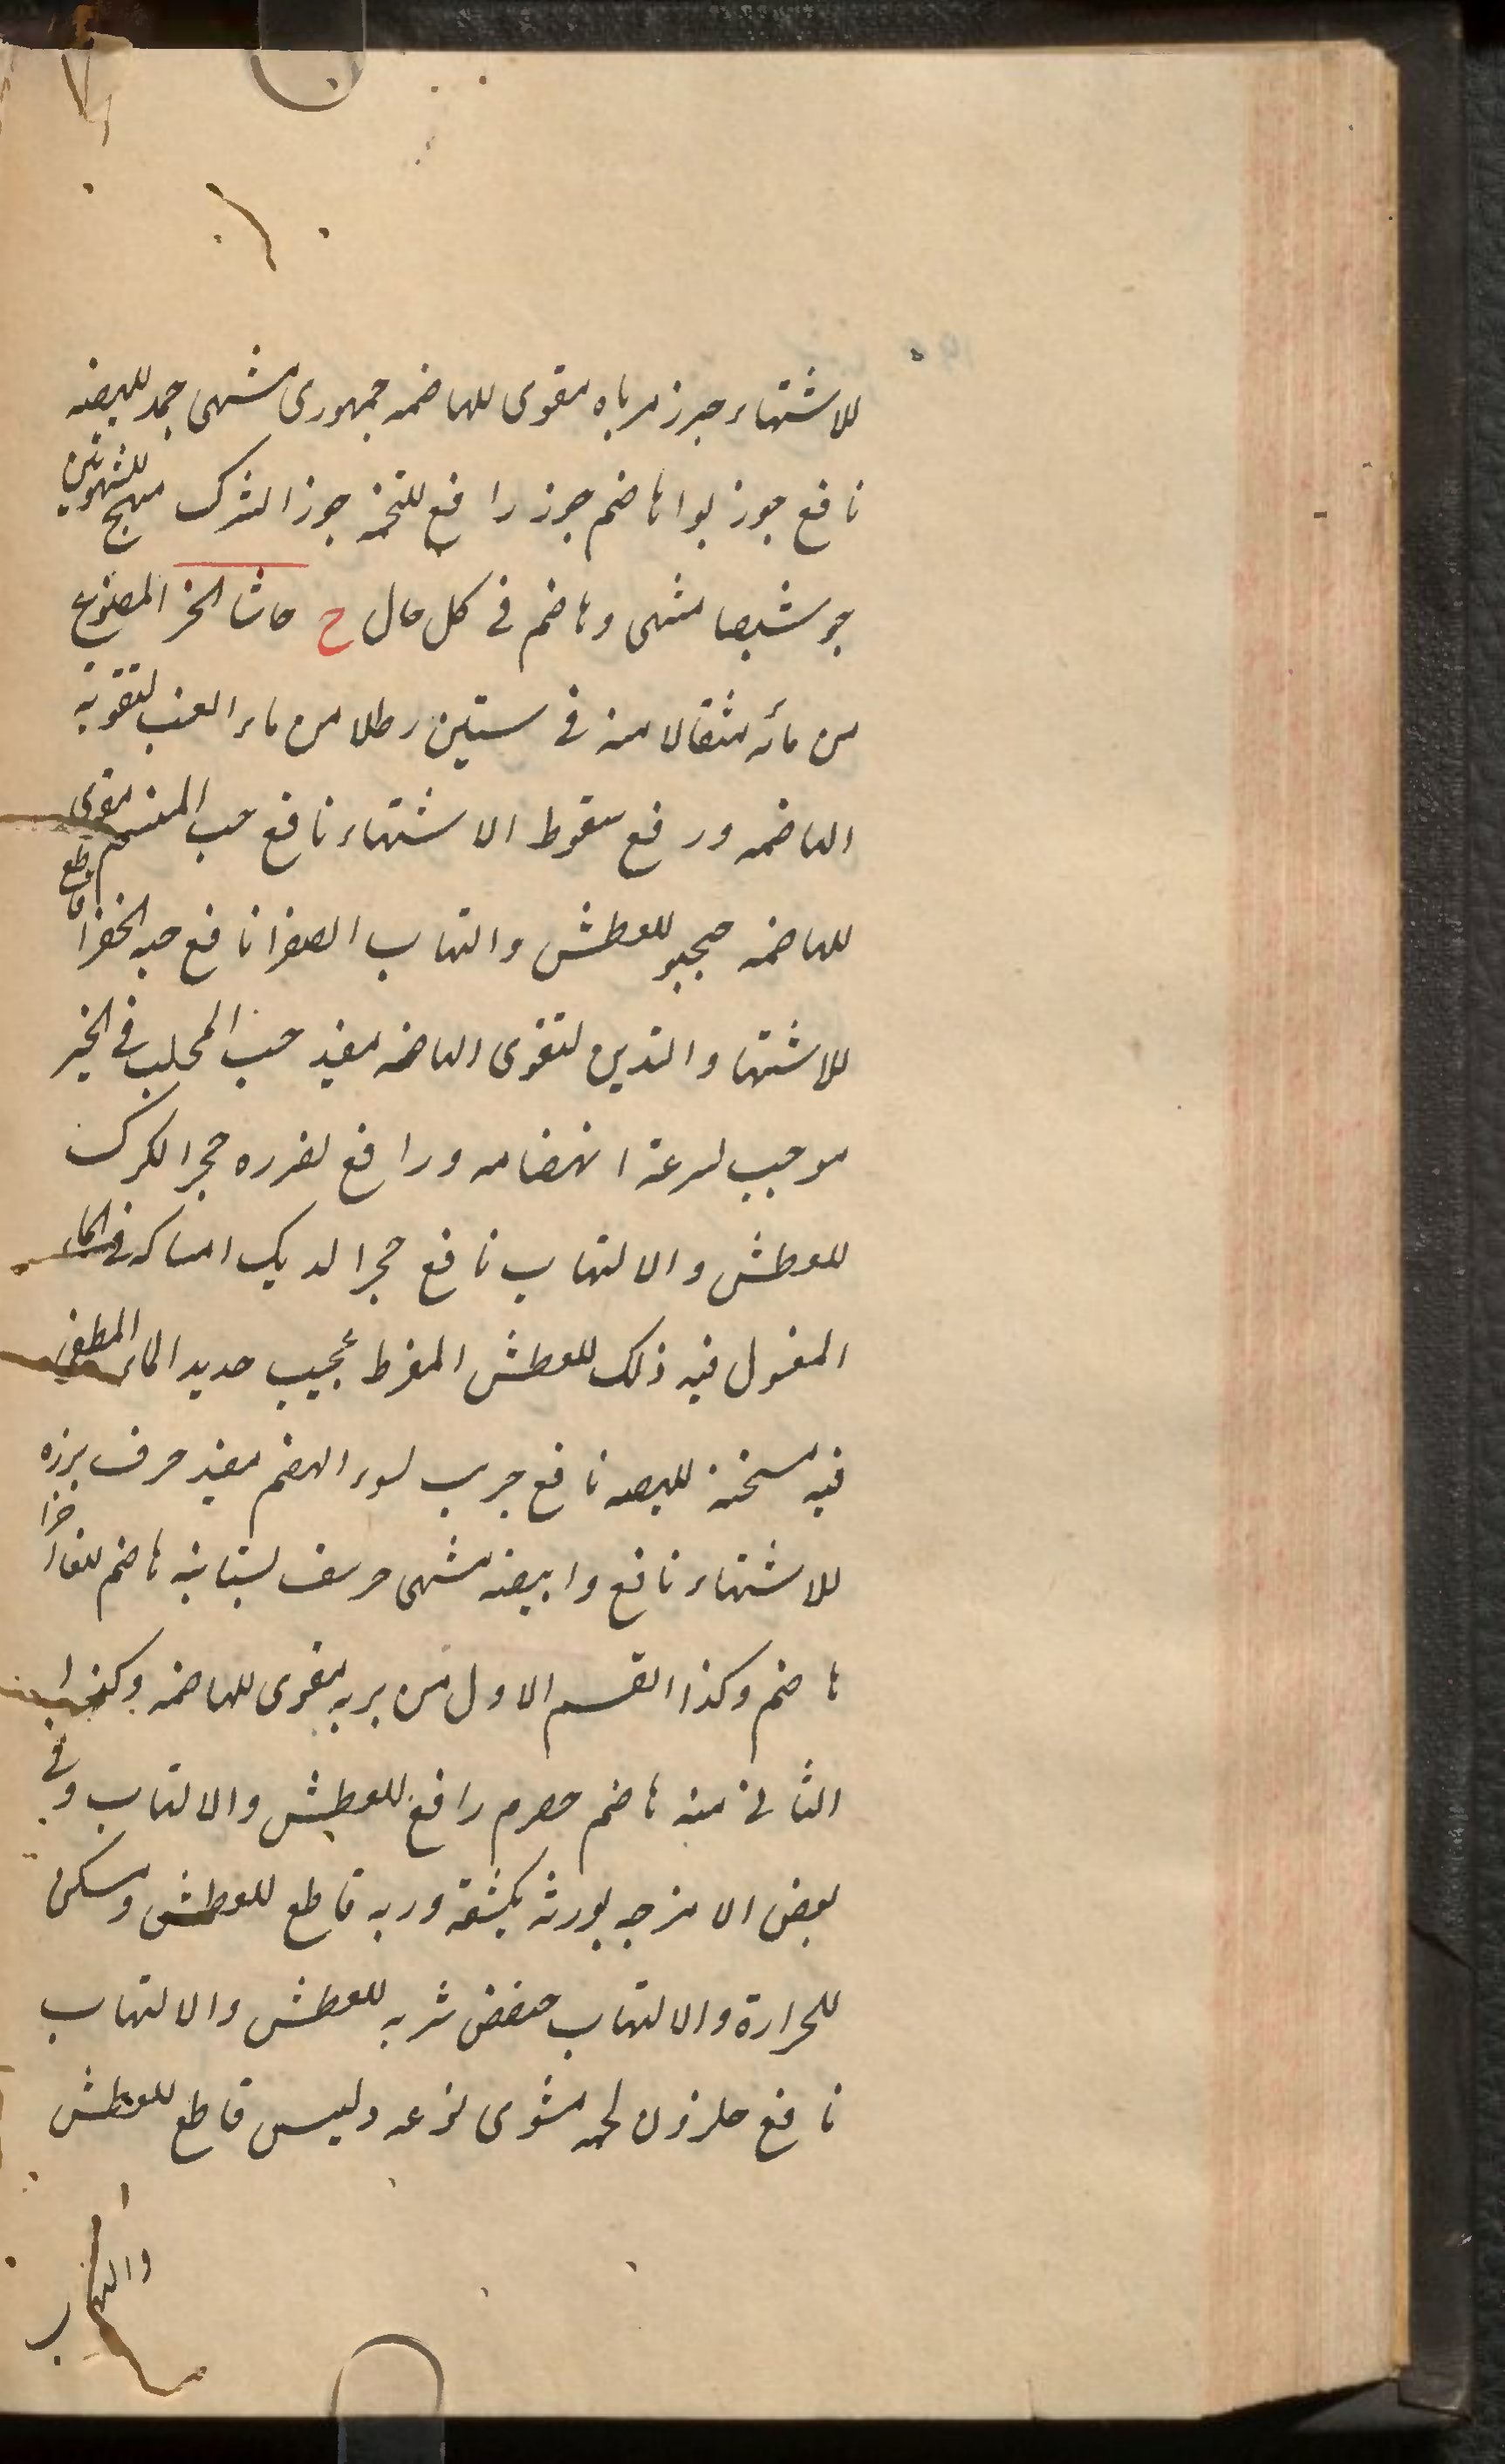 للاشتهاء جزر مرباه مقوی للهاضمه جمهوری مشهی جمد للهیضه
نافع جوز بوا هاضم جوز رافع للتخمه جوز الشرک مهیج للشهوتین
جوشیصا مشهی وهاضم فی کل حال ح حاشا الخمر المصنوع
من مائه مثقالا منه فی ستین رطلا من ماء العنب لتقویة
الهاضمه ورفع سقوط الاشتهاء نافع حب المنسم مقوی
للهاضمه للعطش والتهاب الصفرا نافع حبه الخضرا قاطع
للاشتها والتدین لتقوی الهاضمه مفید حب المحلب فی الخبز
موجب لسرعة انهضامه ورافع لضرره حجر الکرک
للعطش والالتهاب نافع حجر الدیک امساکه فی الماء
المغسول فیه ذلک للعطش المفرط عجیب حدید الماء المطفی
فیه مسخنة للهیضه نافع جرب لسوء الهضم مفید حرف بزره
للاشتهاء نافع وابیضه مشهی حرشف بستانیه هاضم للغذا
هاضم وکذا القسم الاول من بریه مقوی للهاضمه وکذا
الثانی منه هاضم حصرم رافع للعطش والالتهاب وفی
بعض الامزجه یورثه بکیفیته وربه قاطع للعطش ومسکن
للحرارة والالتهاب حضض شربه للعطش والالتهاب
نافع حلزون لحمه مشوی نوعه ولیس قاطع للعطش
والتهاب